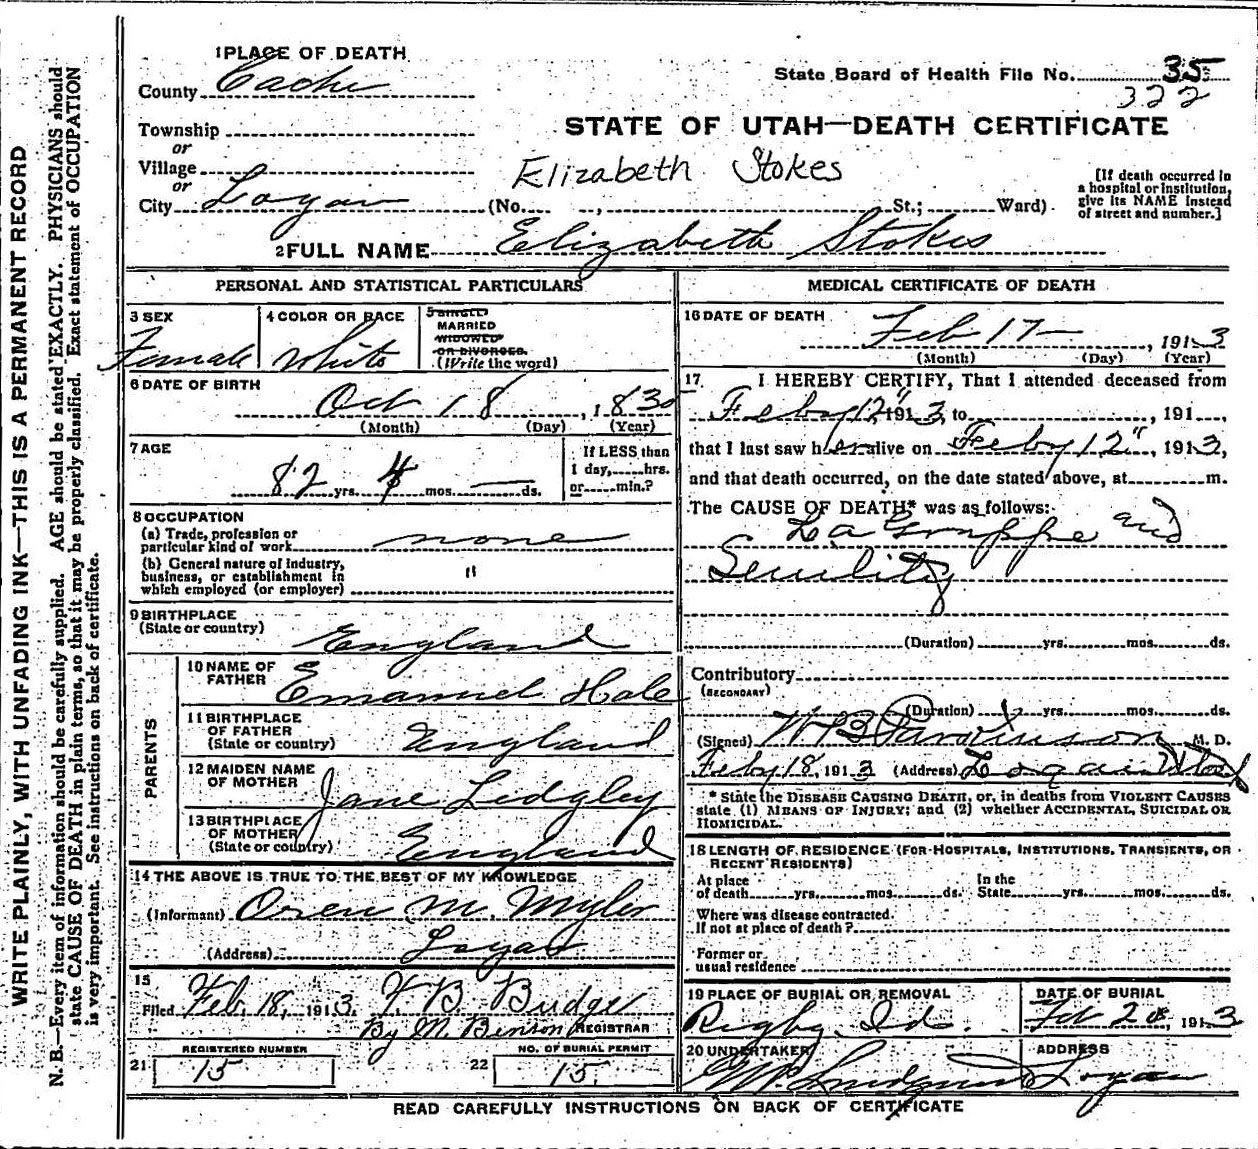 WRITE PLAINLY, WITH UNFADING INK—THIS IS A PERMANENT RECORD
N. B.—Every item of information should be carefully supplied. AGE should be stated EXACTLY. PHYSICIANS should
state CAUSE OF DEATH in plain terms, so that it may be properly classified. Exact statement of OCCUPATION
is very important. See instructions on back of certificate.
1 PLACE OF DEATH
County Cache
State Board of Health File No. 35
322
Township
or
Village
or
City Logan
STATE OF UTAH—DEATH CERTIFICATE
Elizabeth Stokes
(No. , St.; Ward)
[If death occurred in
a hospital or institution,
give its NAME instead
of street and number.]
2 FULL NAME Elizabeth Stokes
PERSONAL AND STATISTICAL PARTICULARS
3 SEX
Female
4 COLOR OR RACE
White
5 SINGLE
MARRIED
WIDOWED
OR DIVORCED.
(Write the word)
6 DATE OF BIRTH
Oct 18, 1830
(Month) (Day) (Year)
7 AGE
82 yrs. 4 mos. — ds.
If LESS than
1 day, hrs.
or min.?
8 OCCUPATION
(a) Trade, profession or
particular kind of work none
(b) General nature of industry,
business, or establishment in
which employed (or employer) "
9 BIRTHPLACE
(State or country) England
PARENTS
10 NAME OF
FATHER Emanuel Hale
11 BIRTHPLACE
OF FATHER
(State or country) England
12 MAIDEN NAME
OF MOTHER Jane Ledgley
13 BIRTHPLACE
OF MOTHER
(State or country) England
14 THE ABOVE IS TRUE TO THE BEST OF MY KNOWLEDGE
(Informant) Oren M. Myler
(Address) Logan
15
Filed Feb. 18, 1913. F. B. Budge
By M. Benson REGISTRAR
21 REGISTERED NUMBER
15
22 NO. OF BURIAL PERMIT
15
MEDICAL CERTIFICATE OF DEATH
16 DATE OF DEATH
Feb 17—, 1913
(Month) (Day) (Year)
17 I HEREBY CERTIFY, That I attended deceased from
Feby 12", 1913, to , 191 ,
that I last saw her alive on Feeby 12", 1913,
and that death occurred, on the date stated above, at m.
The CAUSE OF DEATH* was as follows:
La Grippe and
Senility
(Duration) yrs. mos. ds.
Contributory
(SECONDARY)
(Duration) yrs. mos. ds.
(Signed) W B Parkinson M. D.
Feby 18, 1913 (Address) Logan Utah
* State the DISEASE CAUSING DEATH, or, in deaths from VIOLENT CAUSES
state (1) MEANS OF INJURY; and (2) whether ACCIDENTAL, SUICIDAL OR
HOMICIDAL.
18 LENGTH OF RESIDENCE (FOR HOSPITALS, INSTITUTIONS, TRANSIENTS, OR
RECENT RESIDENTS)
At place
of death yrs. mos. ds.
In the
State yrs. mos. ds.
Where was disease contracted.
If not at place of death?
Former or
usual residence
19 PLACE OF BURIAL OR REMOVAL
Rigby, Id.
DATE OF BURIAL
Feb 20, 1913
20 UNDERTAKER
ADDRESS
Logan
READ CAREFULLY INSTRUCTIONS ON BACK OF CERTIFICATE